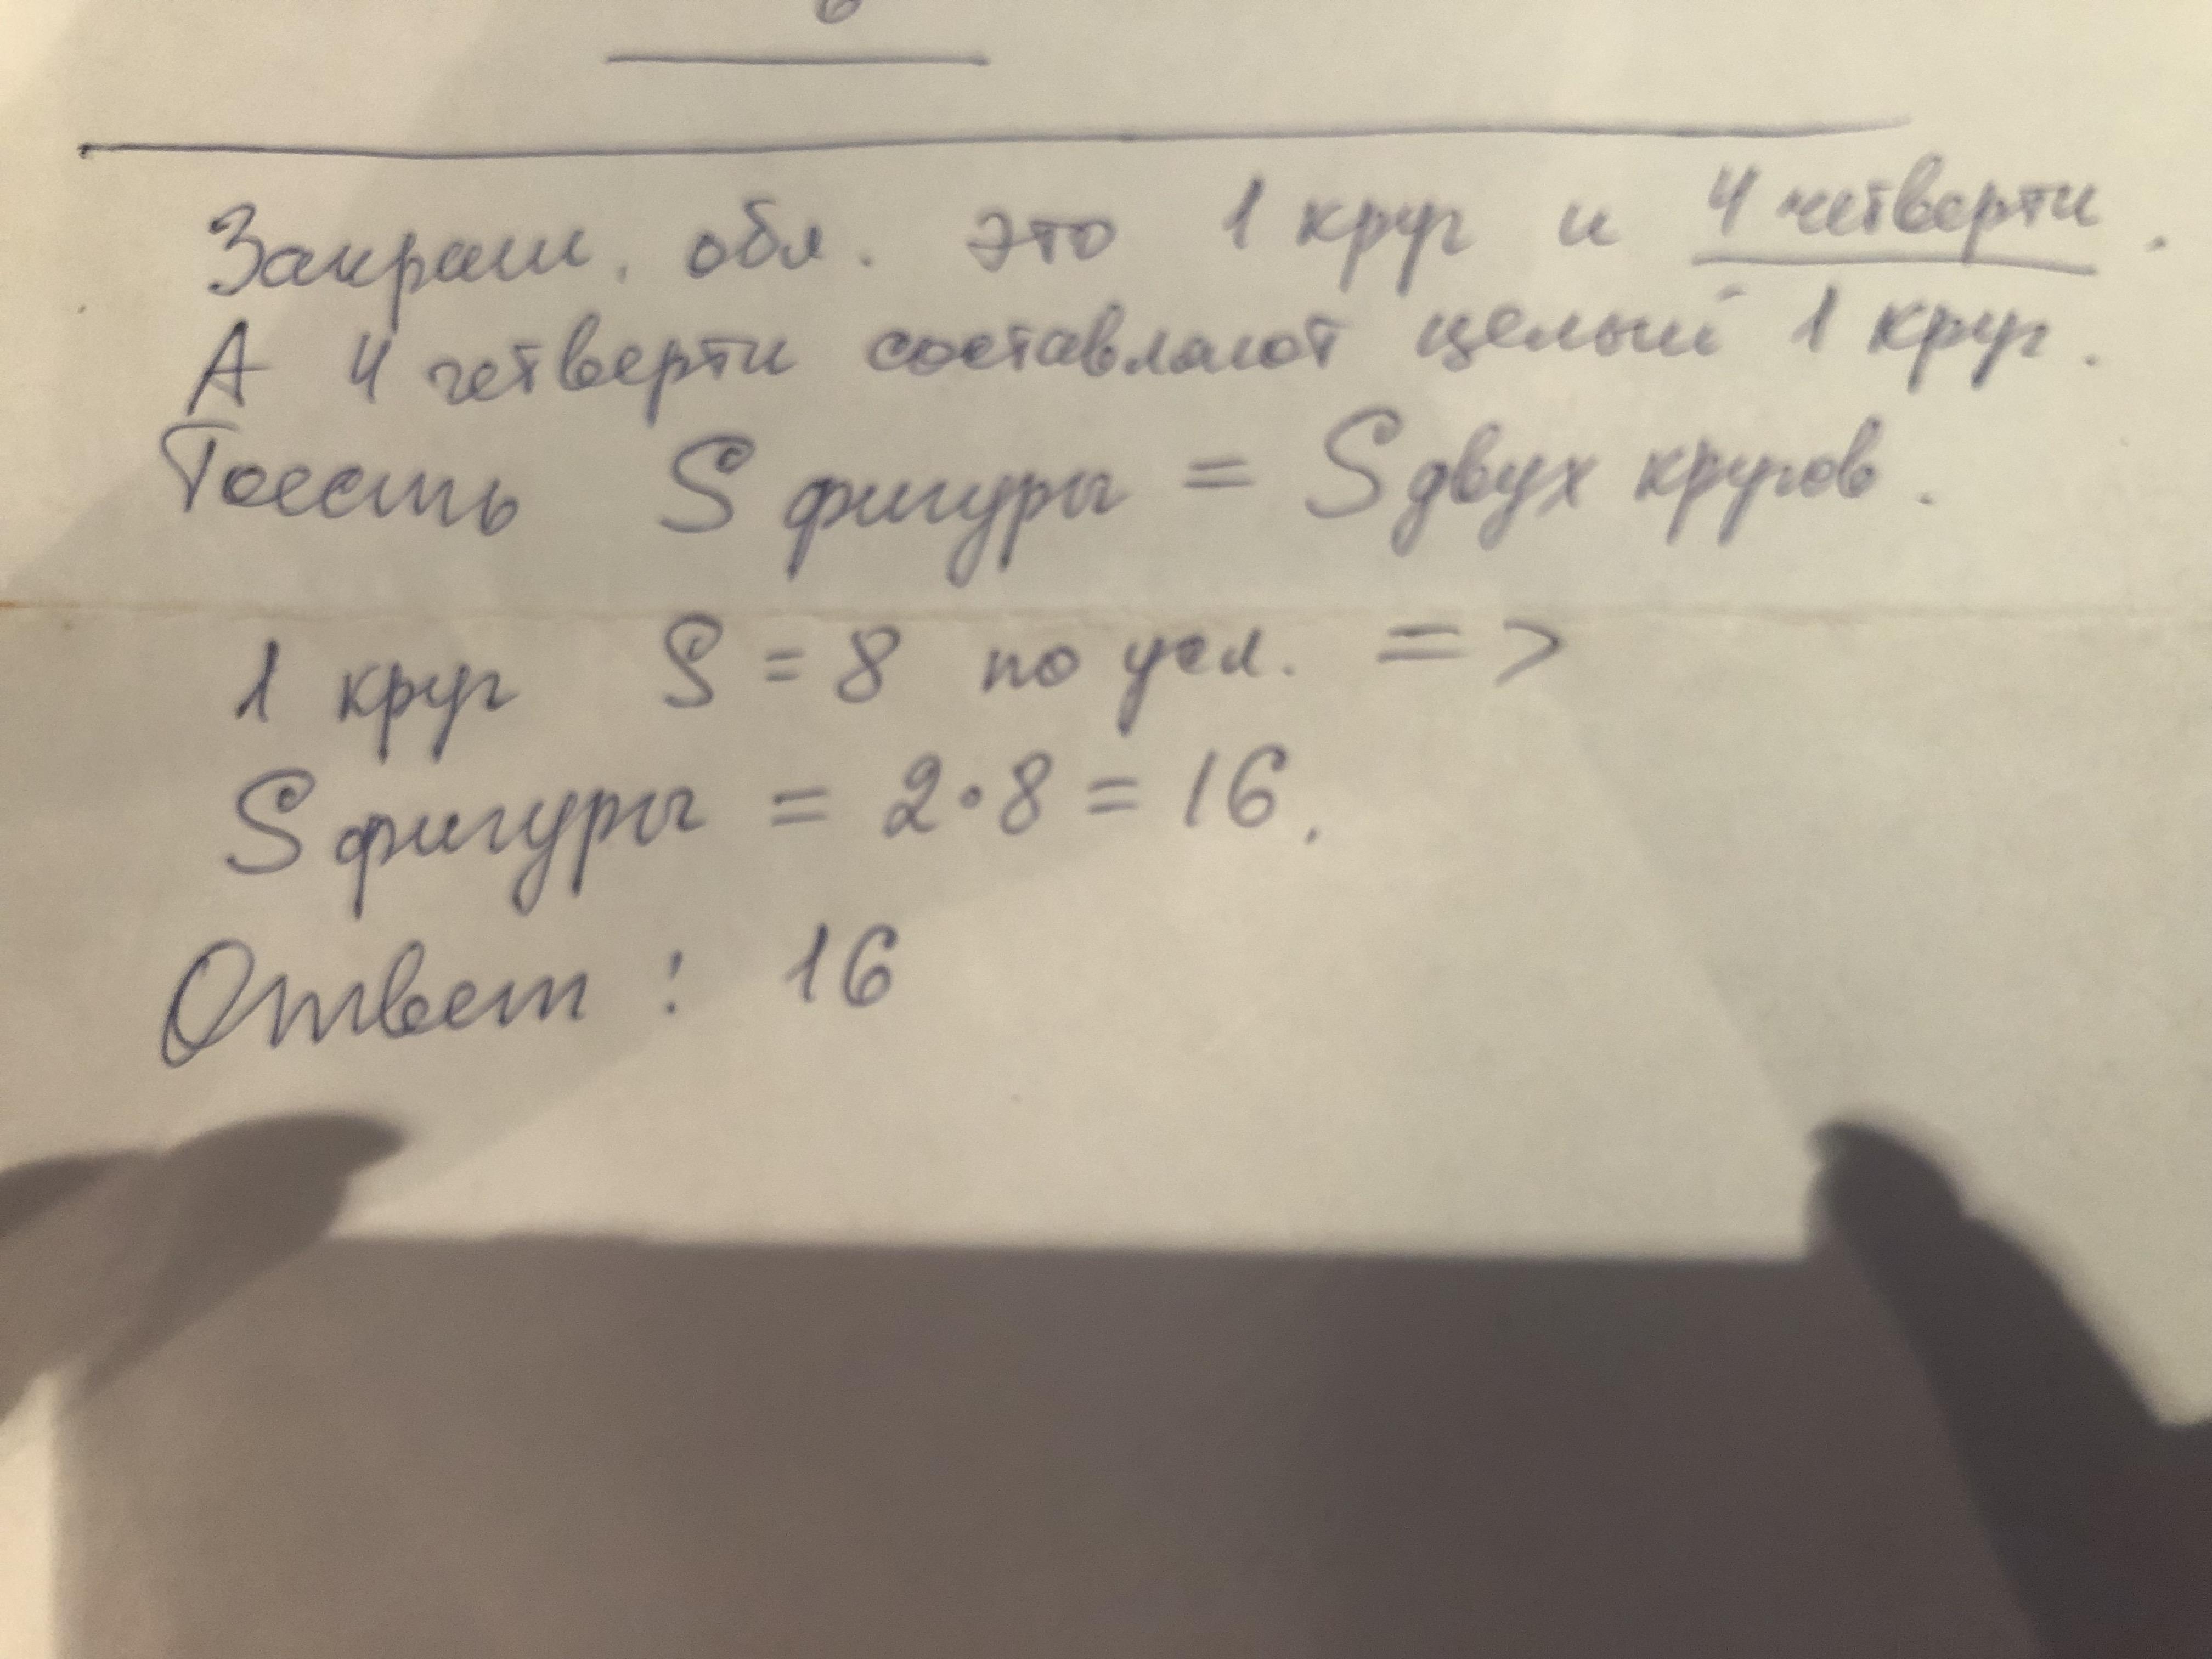 Закраш. обл. это 1 круг и 4 четверти.
А 4 четверти составляют целый 1 круг.
Тоесть S фигуры = S двух кругов.
1 круг S = 8 по усл. =>
S фигуры = 2•8 = 16.
Ответ: 16